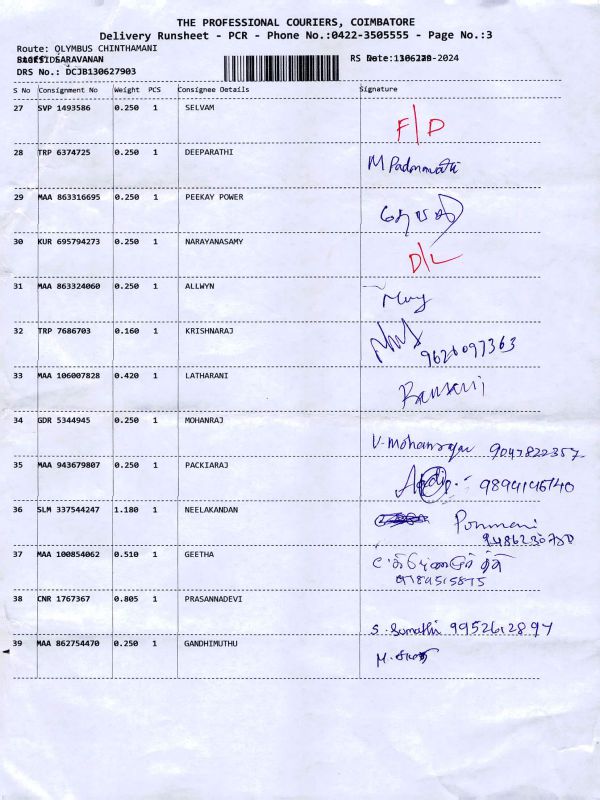 THE PROFESSIONAL COURIERS, COIMBATORE
Delivery Runsheet - PCR - Phone No.:0422-3505555 - Page No.:3
Route: OLYMBUS CHINTHAMANI
SARAVANAN
DRS No.: DCJB130627903
S No Consignment No Weight PCS Consignee Details Signature
27 SVP 1493586 0.250 1 SELVAM F/D
28 TRP 6374725 0.250 1 DEEPARATHI M Padmavathi
29 MAA 863316695 0.250 1 PEEKAY POWER
30 KUR 695794273 0.250 1 NARAYANASAMY D/L
31 MAA 863324060 0.250 1 ALLWYN
32 TRP 7686703 0.160 1 KRISHNARAJ 9626097363
33 MAA 106007828 0.420 1 LATHARANI
34 GDR 5344945 0.250 1 MOHANRAJ V. Mohanraj 9047822357
35 MAA 943679807 0.250 1 PACKIARAJ
36 SLM 337544247 1.180 1 NEELAKANDAN Ponmani
37 MAA 100854062 0.510 1 GEETHA
38 CNR 1767367 0.805 1 PRASANNADEVI S. Sumathi 9952612897
39 MAA 862754470 0.250 1 GANDHIMUTHU